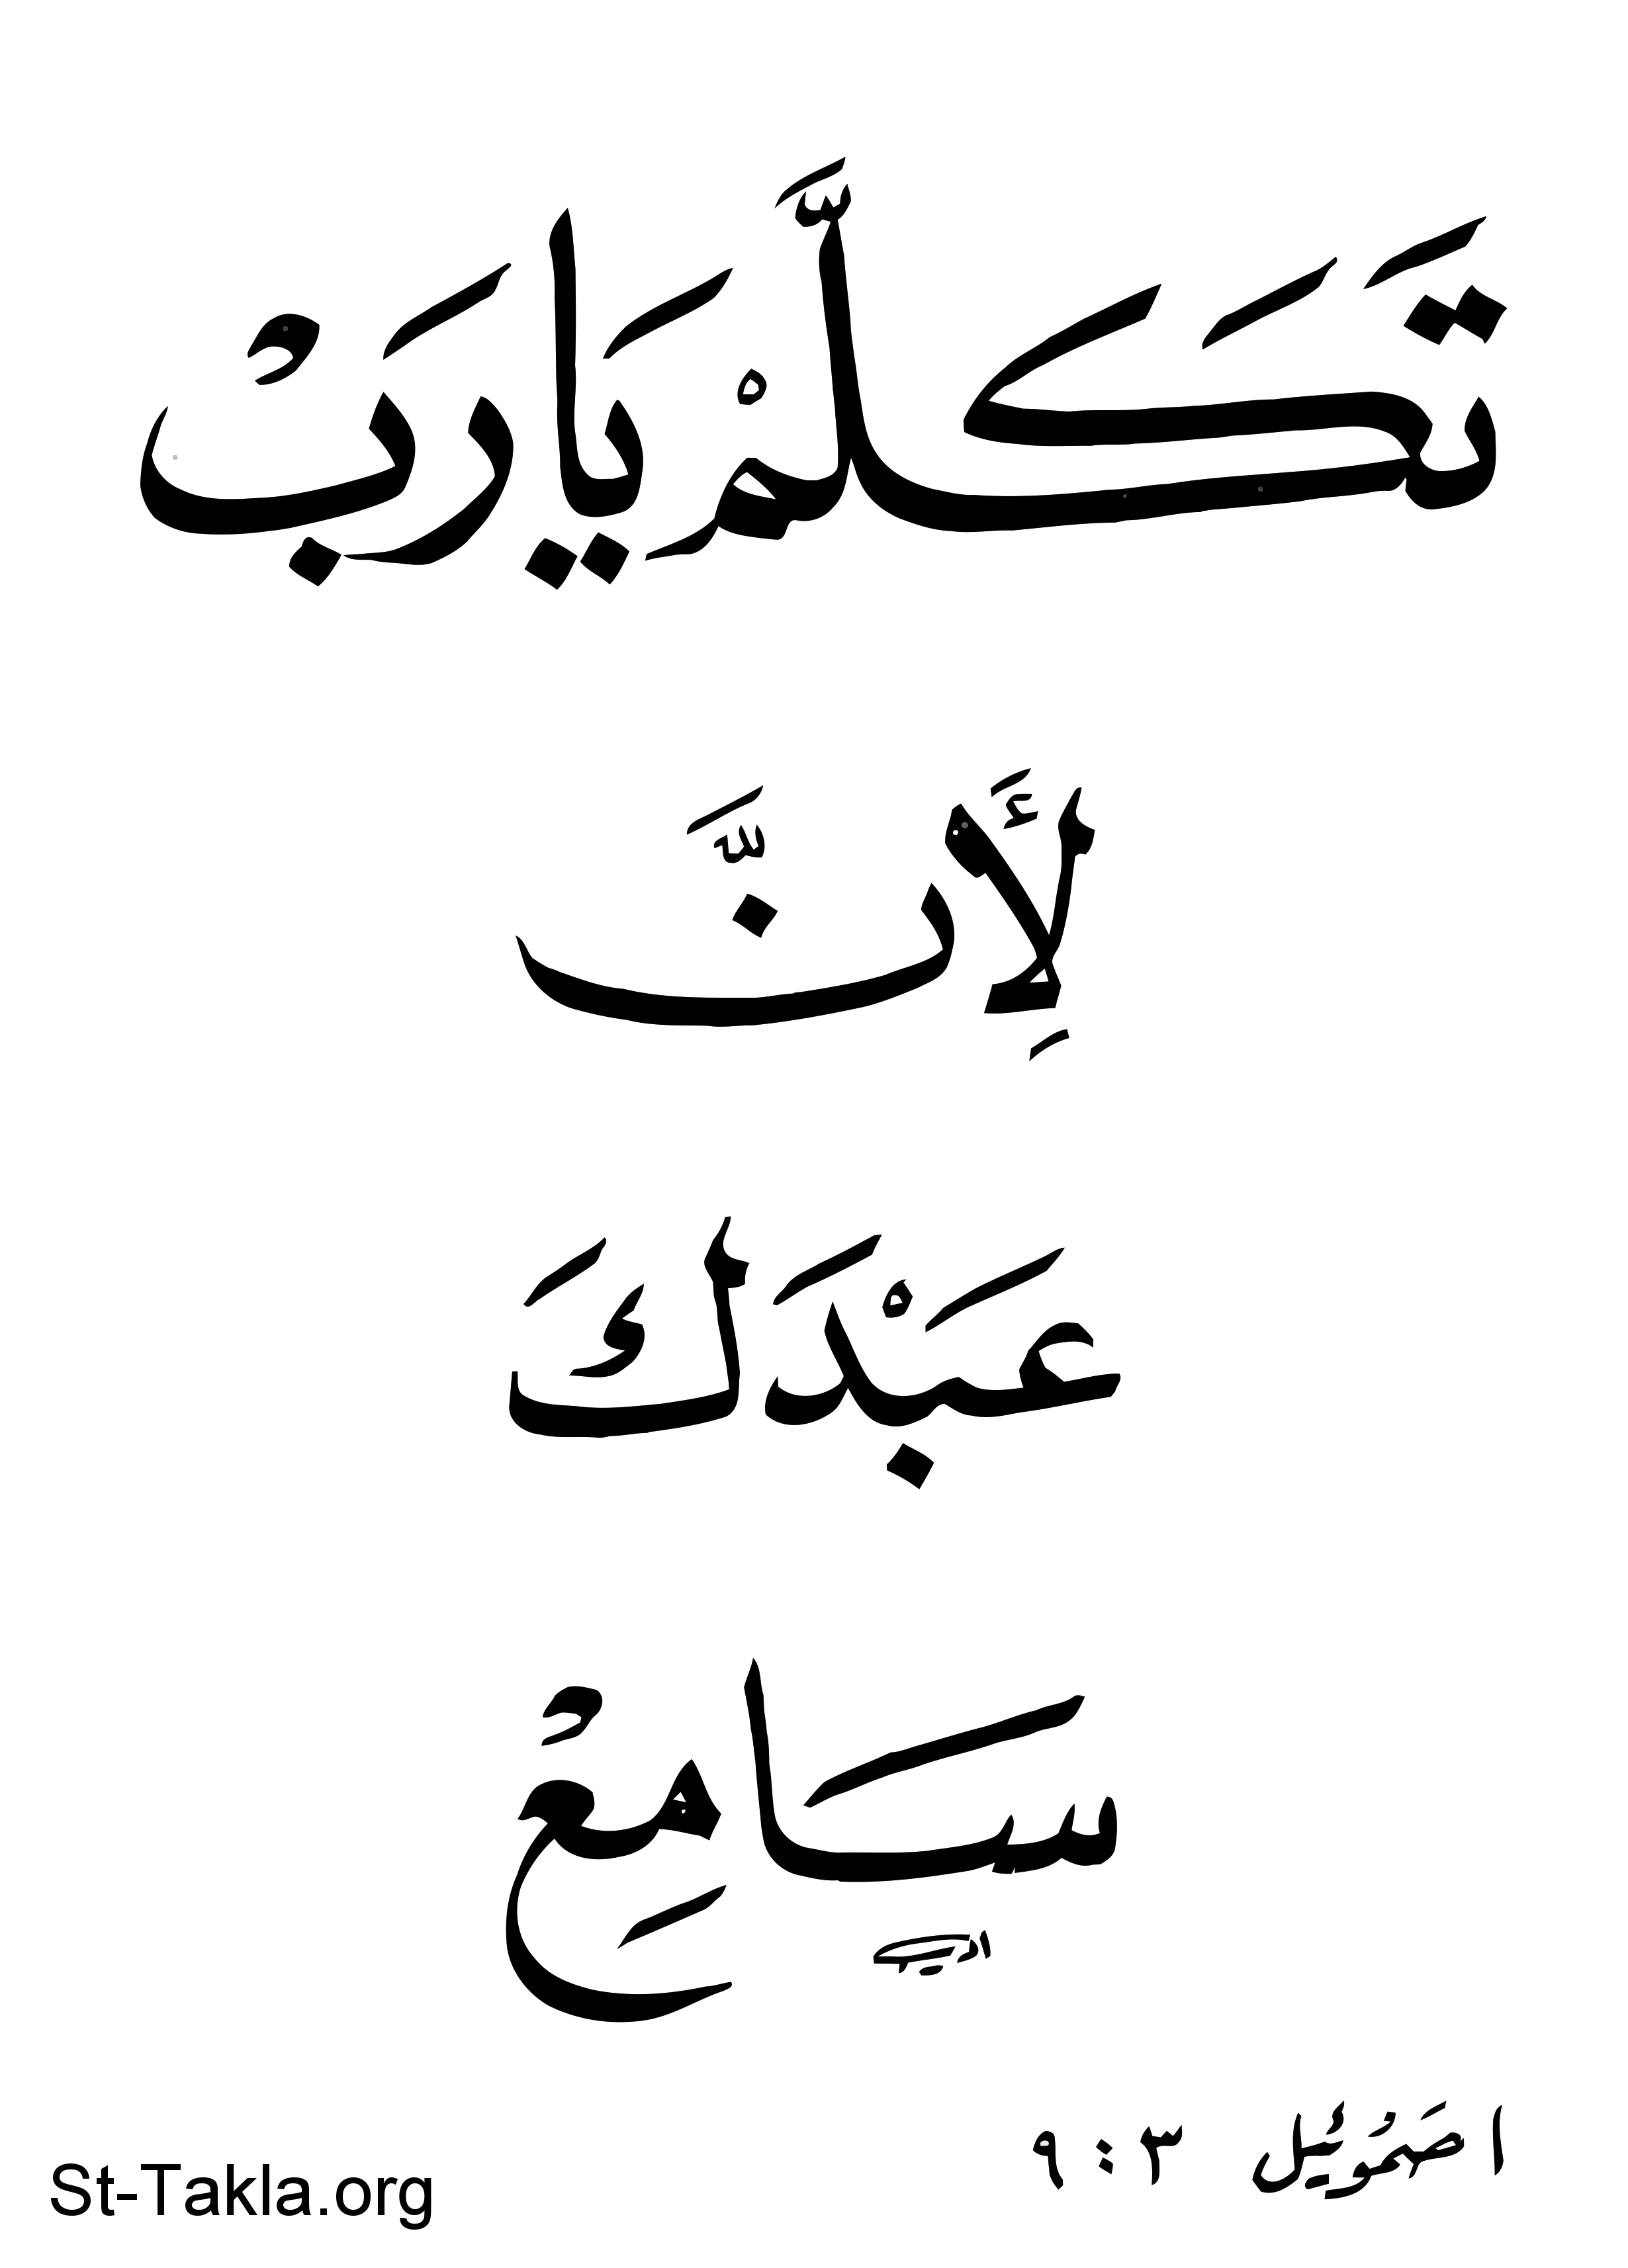 تَكَلَّمْ يَا رَبُّ
لِأَنَّ
عَبْدَكَ
سَامِعٌ
١ صَمُوئِيل ٣ : ٩
St-Takla.org